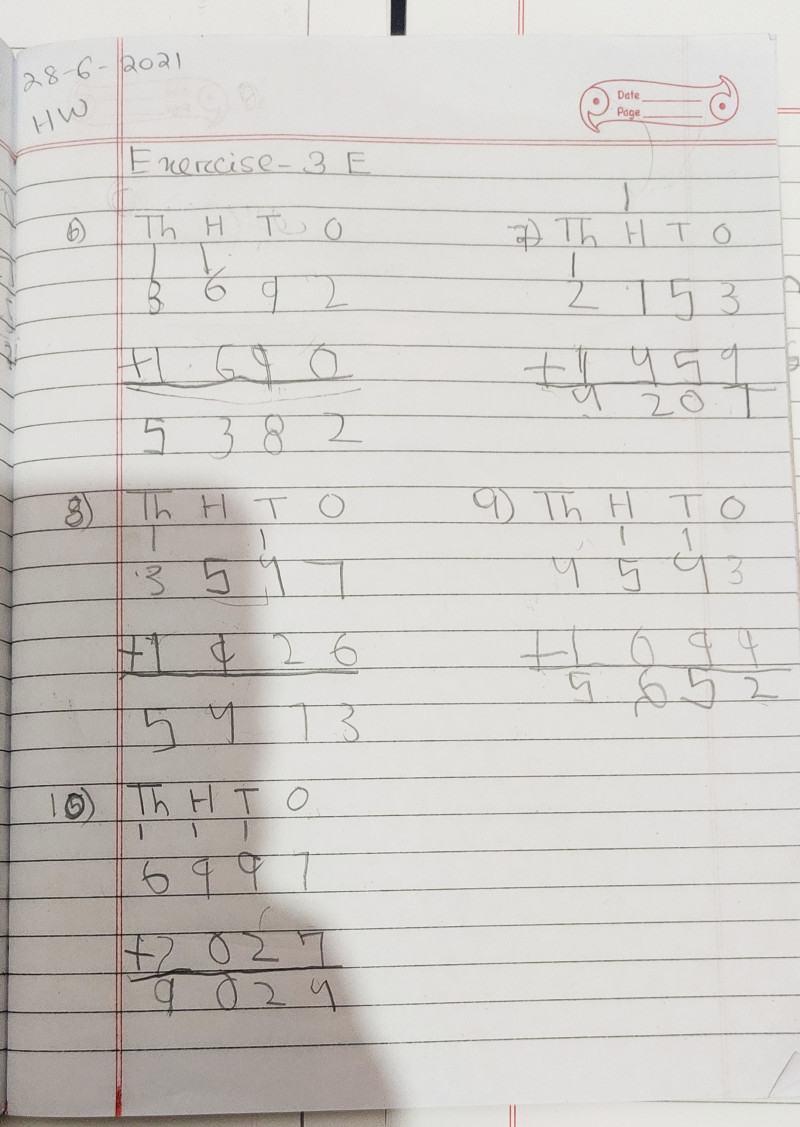 28-6-2021
HW
Date
Page
Exercise-3 E
6) Th H T O
1 1
3 6 9 2
+1 6 9 0
5 3 8 2
7) Th H T O
1
1
2 7 5 3
+1 4 5 9
4 2 0 7
8) Th H T O
1 1
3 5 4 7
+1 9 2 6
5 4 7 3
9) Th H T O
1 1
4 5 4 3
+1 0 9 9
5 6 5 2
10) Th H T O
1 1 1
6 9 9 7
+2 0 2 7
9 0 2 4